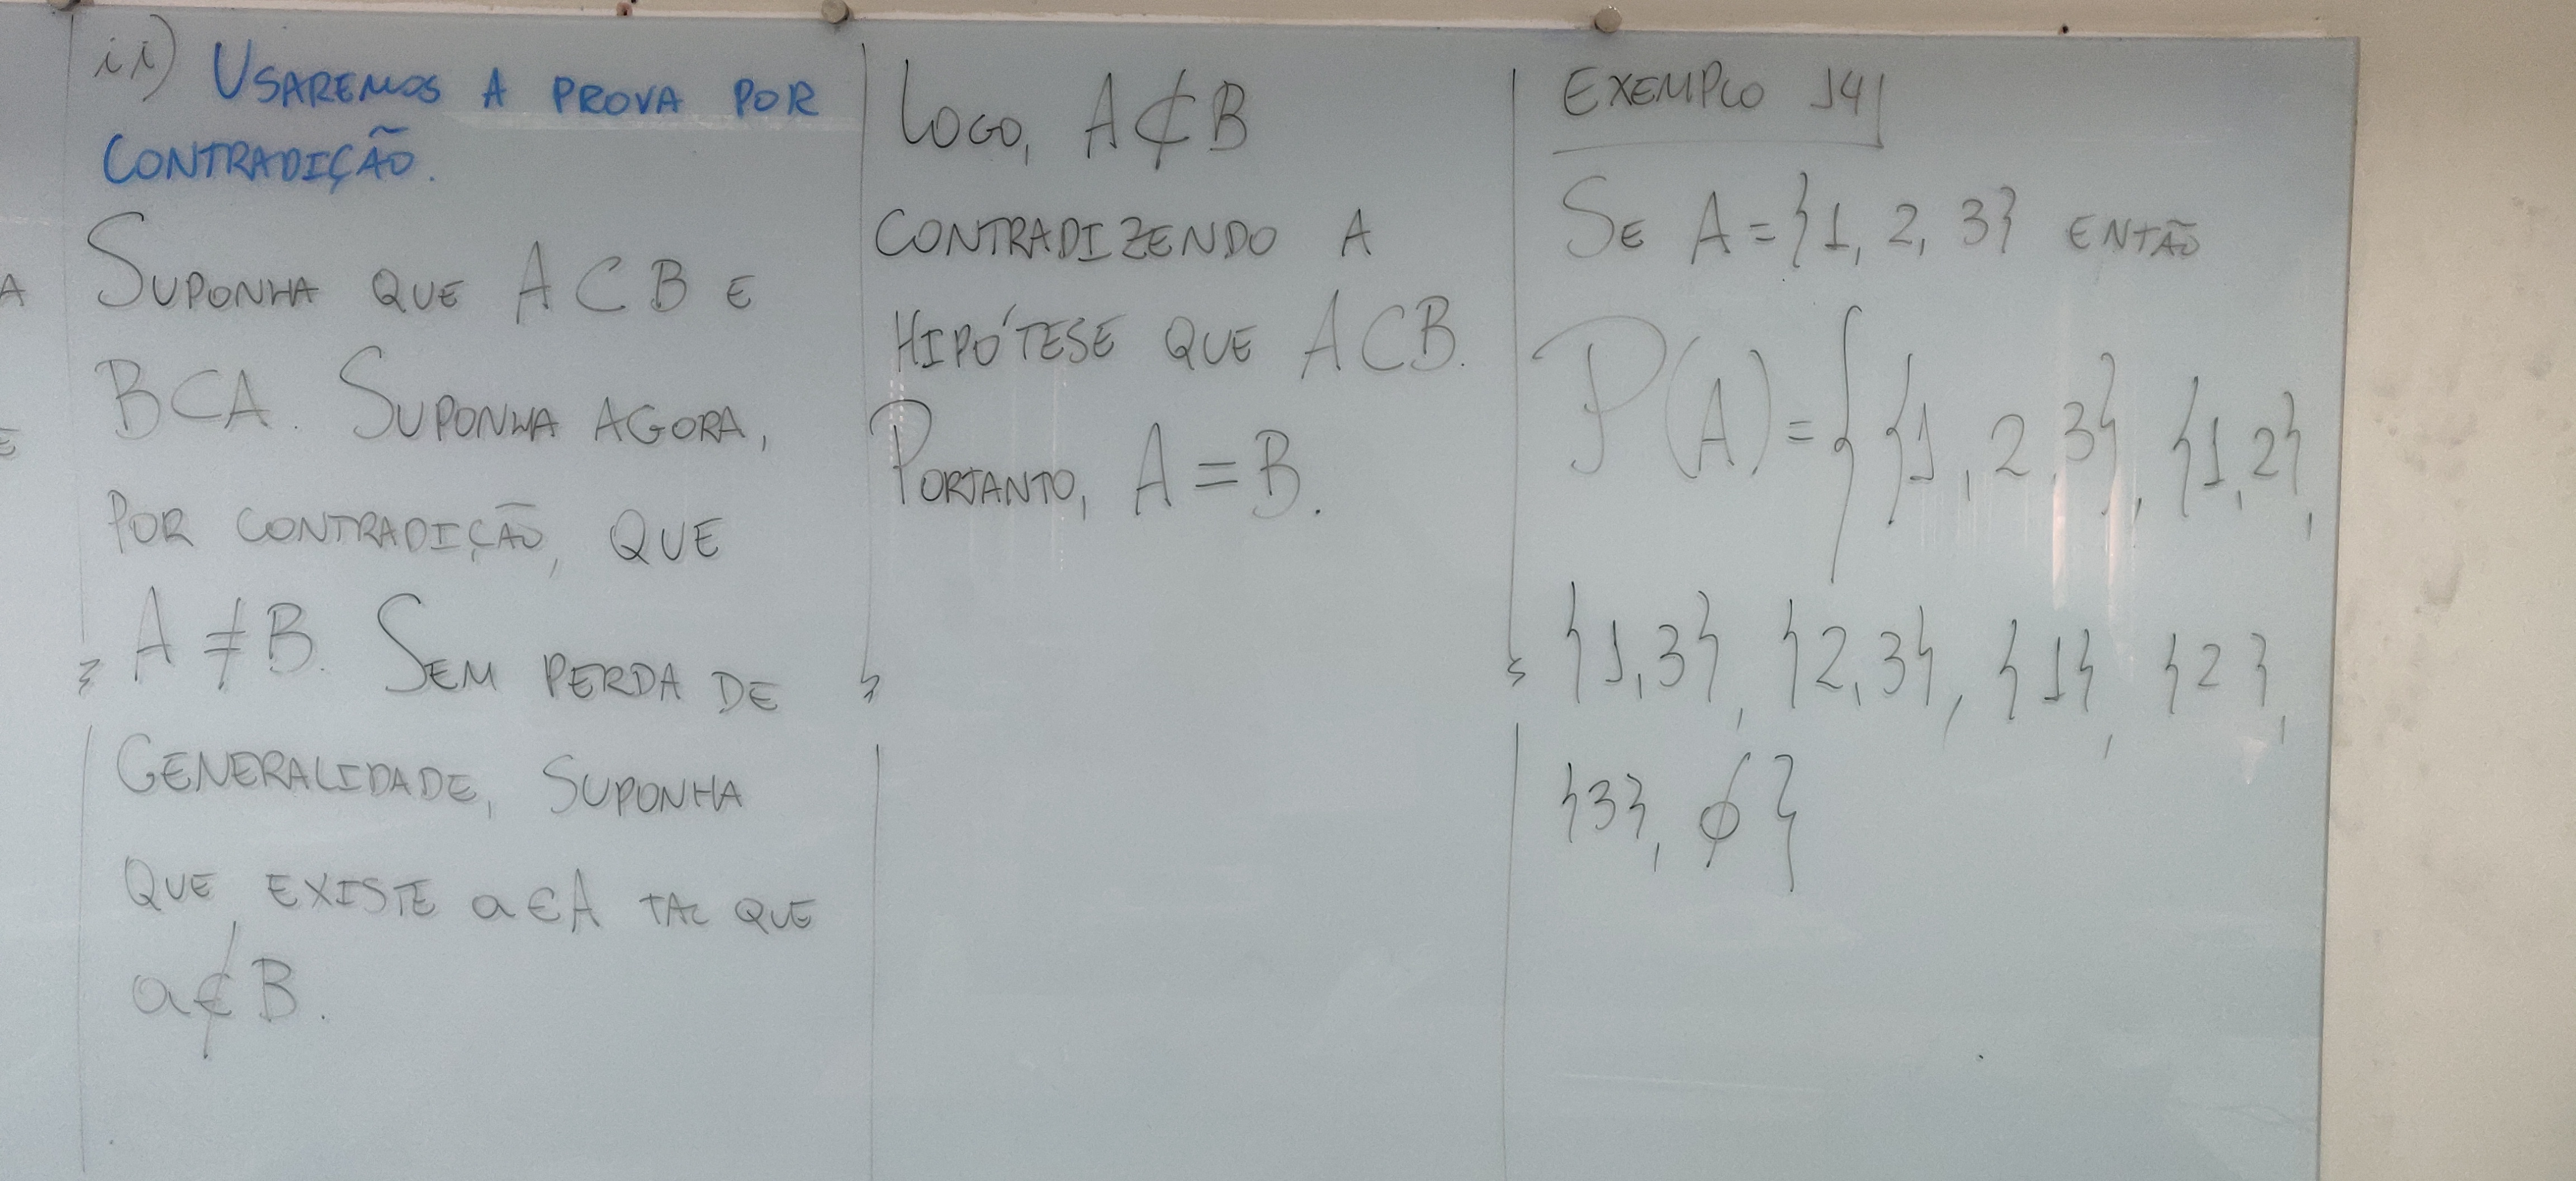 ii) USAREMOS A PROVA POR
CONTRADIÇÃO.
SUPONHA QUE A ⊂ B E
B ⊂ A. SUPONHA AGORA,
POR CONTRADIÇÃO, QUE
A ≠ B. SEM PERDA DE
GENERALIDADE, SUPONHA
QUE EXISTE a ∈ A TAL QUE
a ∉ B.
LOGO, A ⊄ B
CONTRADIZENDO A
HIPÓTESE QUE A ⊂ B.
PORTANTO, A = B.
EXEMPLO 14
SE A = {1, 2, 3} ENTÃO
P(A) = { {1, 2, 3}, {1, 2},
{1, 3}, {2, 3}, {1}, {2},
{3}, ∅ }
A
E